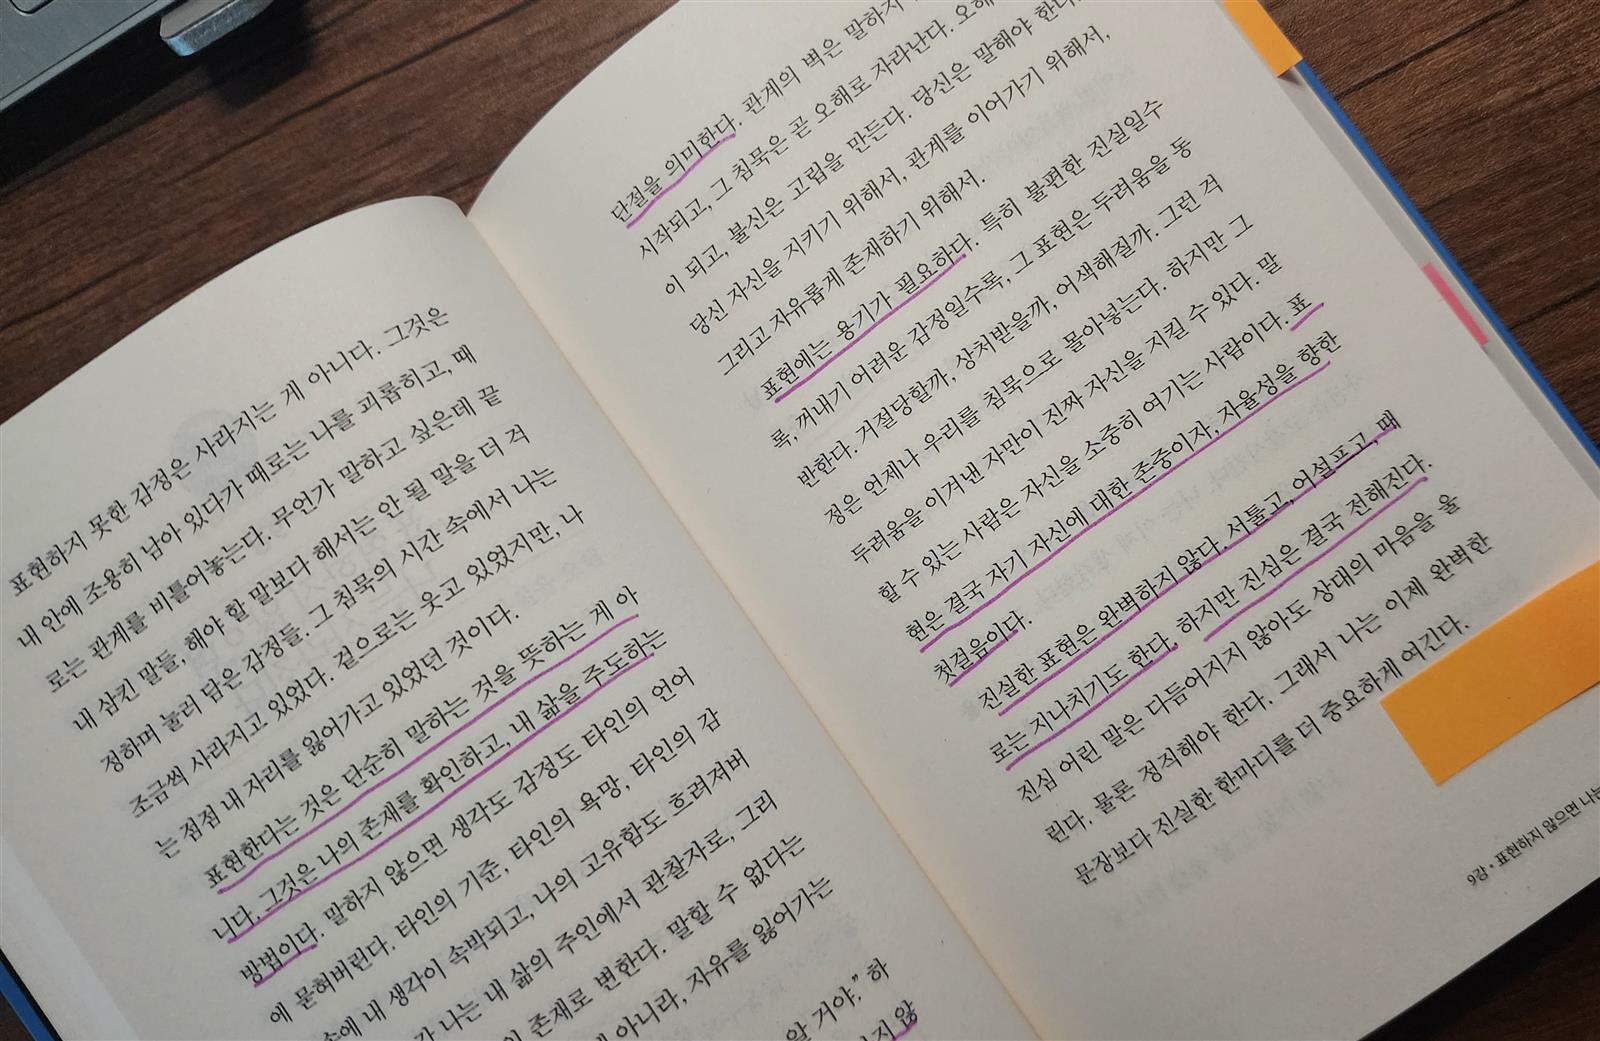 표현하지 못한 감정은 사라지는 게 아니다. 그것은
내 안에 조용히 남아 있다가 때로는 나를 괴롭히고, 때
로는 관계를 비틀어놓는다. 무언가 말하고 싶은데 끝
내 삼킨 말들, 해야 할 말보다 해서는 안 될 말을 더 걱
정하며 눌러 담은 감정들. 그 침묵의 시간 속에서 나는
조금씩 사라지고 있었다. 겉으로는 웃고 있었지만, 나
는 점점 내 자리를 잃어가고 있었던 것이다.
표현한다는 것은 단순히 말하는 것을 뜻하는 게 아
니다. 그것은 나의 존재를 확인하고, 내 삶을 주도하는
방법이다. 말하지 않으면 생각도 감정도 타인의 언어
에 묻혀버린다. 타인의 기준, 타인의 욕망, 타인의 감
속에 내 생각이 속박되고, 나의 고유함도 흐려져버
나는 내 삶의 주인에서 관찰자로, 그리
존재로 변한다. 말할 수 없다는
아니라, 자유를 잃어가는
알 거야.” 하
않
단절을 의미한다. 관계의 벽은 말하지
시작되고, 그 침묵은 곧 오해로 자라난다. 오해
이 되고, 불신은 고립을 만든다. 당신은 말해야 한다.
당신 자신을 지키기 위해서, 관계를 이어가기 위해서,
그리고 자유롭게 존재하기 위해서.
표현에는 용기가 필요하다. 특히 불편한 진실일수
록, 꺼내기 어려운 감정일수록, 그 표현은 두려움을 동
반한다. 거절당할까, 상처받을까, 어색해질까. 그런 걱
정은 언제나 우리를 침묵으로 몰아넣는다. 하지만 그
두려움을 이겨낸 자만이 진짜 자신을 지킬 수 있다. 말
할 수 있는 사람은 자신을 소중히 여기는 사람이다. 표
현은 결국 자기 자신에 대한 존중이자, 자율성을 향한
첫걸음이다.
진실한 표현은 완벽하지 않다. 서툴고, 어설프고, 때
로는 지나치기도 한다. 하지만 진심은 결국 전해진다.
진심 어린 말은 다듬어지지 않아도 상대의 마음을 울
린다. 물론 정직해야 한다. 그래서 나는 이제 완벽한
문장보다 진실한 한마디를 더 중요하게 여긴다.
9강 • 표현하지 않으면 나는